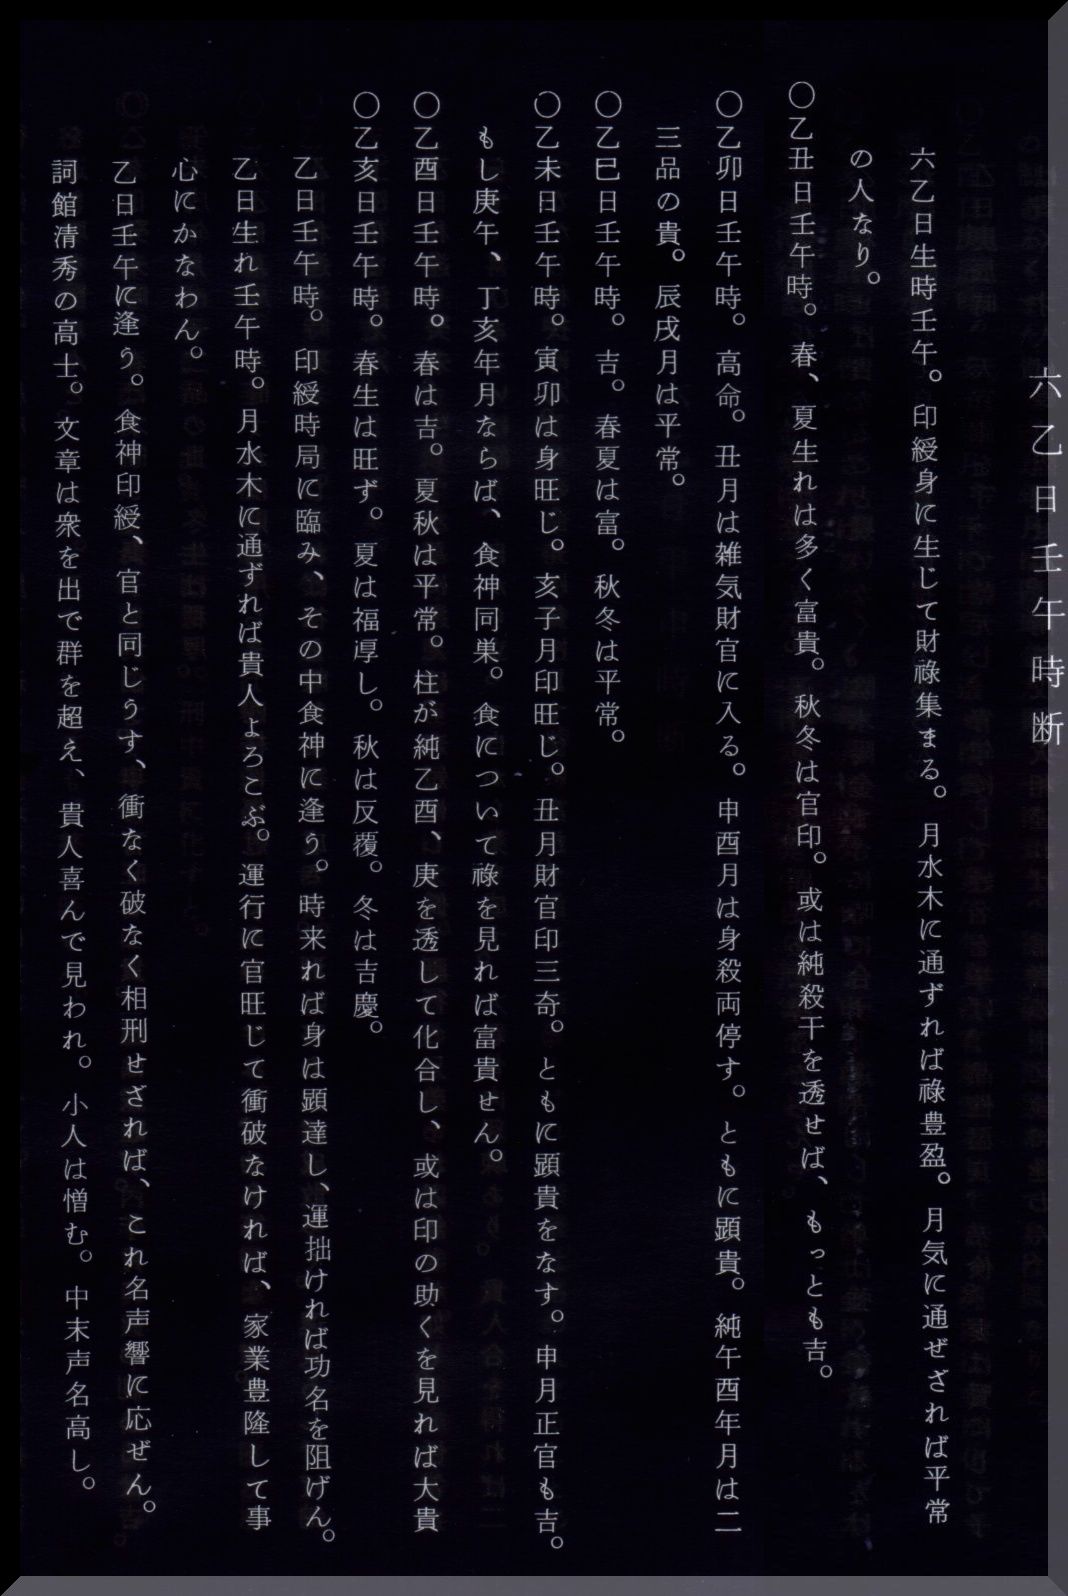 六乙日壬午時断
六乙日生時壬午。印綬身に生じて財祿集まる。月水木に通ずれば祿豊盈。月気に通ぜざれば平常
の人なり。
〇乙丑日壬午時。春、夏生れは多く富貴。秋冬は官印。或は純殺干を透せば、もっとも吉。
〇乙卯日壬午時。高命。丑月は雑気財官に入る。申酉月は身殺両停す。ともに顕貴。純午酉年月は二
三品の貴。辰戌月は平常。
〇乙巳日壬午時。吉。春夏は富。秋冬は平常。
〇乙未日壬午時。寅卯は身旺じ。亥子月印旺じ。丑月財官印三奇。ともに顕貴をなす。申月正官も吉。
もし庚午、丁亥年月ならば、食神同巣。食について祿を見れば富貴せん。
〇乙酉日壬午時。春は吉。夏秋は平常。柱が純乙酉、庚を透して化合し、或は印の助くを見れば大貴
〇乙亥日壬午時。春生は旺ず。夏は福厚し。秋は反覆。冬は吉慶。
乙日壬午時。印綬時局に臨み、その中食神に逢う。時来れば身は顕達し、運拙ければ功名を阻げん。
乙日生れ壬午時。月水木に通ずれば貴人よろこぶ。運行に官旺じて衝破なければ、家業豊隆して事
心にかなわん。
乙日壬午に逢う。食神印綬、官と同じうす、衝なく破なく相刑せざれば、これ名声響に応ぜん。
詞館清秀の高士。文章は衆を出で群を超え、貴人喜んで見われ。小人は憎む。中末声名高し。